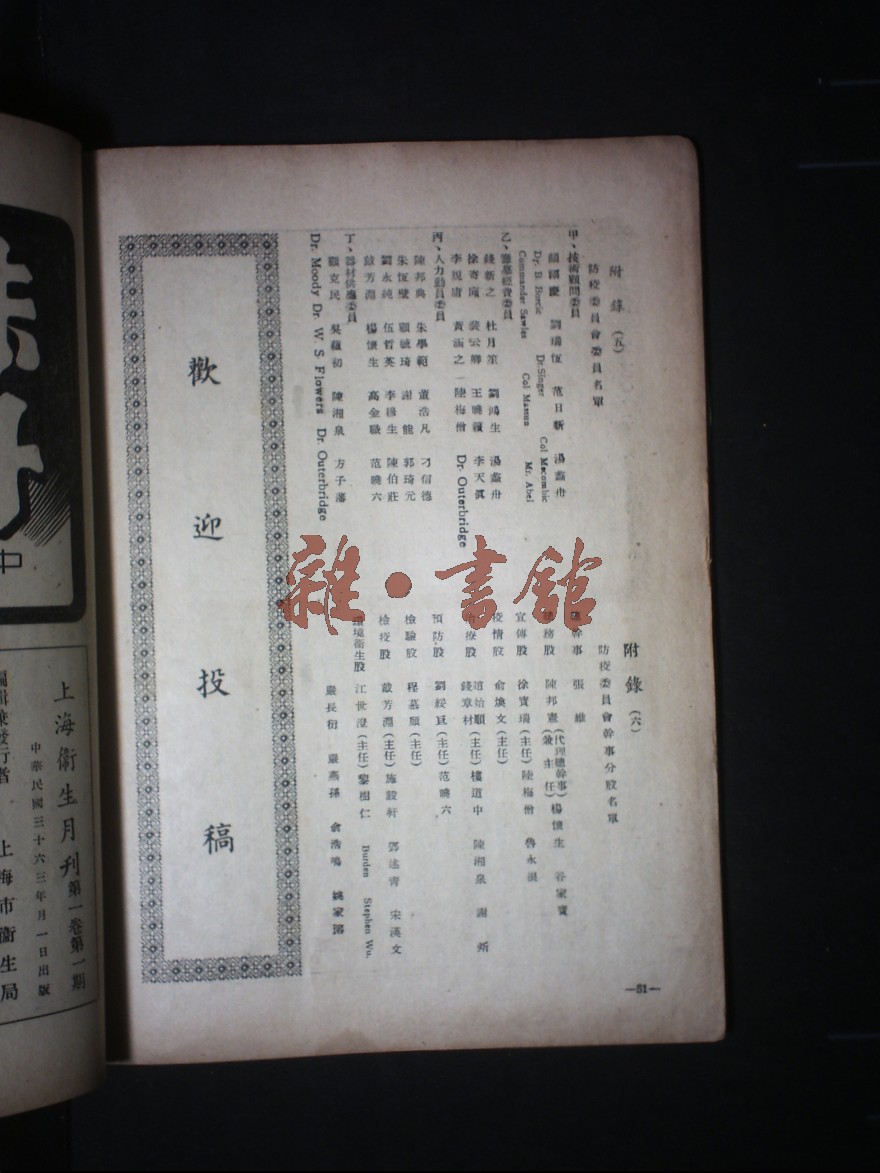 附錄(五)
防疫委員會委員名單
甲、技術顧問委員
顏國慶 劉瑞恆 范日新 湯蠡舟
Dr. B. Borcic Dr. Singer Col Mecombic
Commander Sawles Col Massun Mr. Abel
乙、籌募經費委員
錢新之 杜月笙 劉鴻生 湯蠡舟
徐寄廎 裴云卿 王曉籟 李天真
李規庸 黃涵之 陸梅僧 Dr. Outerbridge
丙、人力動員委員
陳邦典 朱學範 董浩凡 刁信德
朱恆璧 顧毓琦 謝能 郭琦元
劉永純 伍哲英 李穆生 陳伯莊
歐芳淵 楊懷生 高金職 范曉六
丁、器材供應委員
顧克民 吳蘊初 陳湘泉 方子藩
Dr. Moody Dr. W. S Flowers Dr. Outerbridge
附錄(六)
防疫委員會幹事分股名單
幹事 張維
務股 陳邦憲(代理總幹事兼主任) 楊懷生 谷家寶
宣傳股 徐寶瑞(主任) 陸梅僧 魯永泯
疫情股 俞煥文(主任)
治療股 趙始順 錢章材(主任) 樓道中 陳湘泉 謝炘
預防股 劉綏亘(主任) 范曉六
檢驗股 程慕頤(主任)
檢疫股 歐芳淵(主任) 施毅軒 鄧述青 宋漢文
環境衛生股 江世澄(主任) 黎樹仁 Burden Stephen Wu.
嚴長衍 嚴燕孫 俞浩鳴 姚家鄧
歡迎投稿
—51—
上海衛生月刊 第一卷第一期
中華民國三十六年三月一日出版
編輯兼發行者 上海市衛生局
中
雜·書館